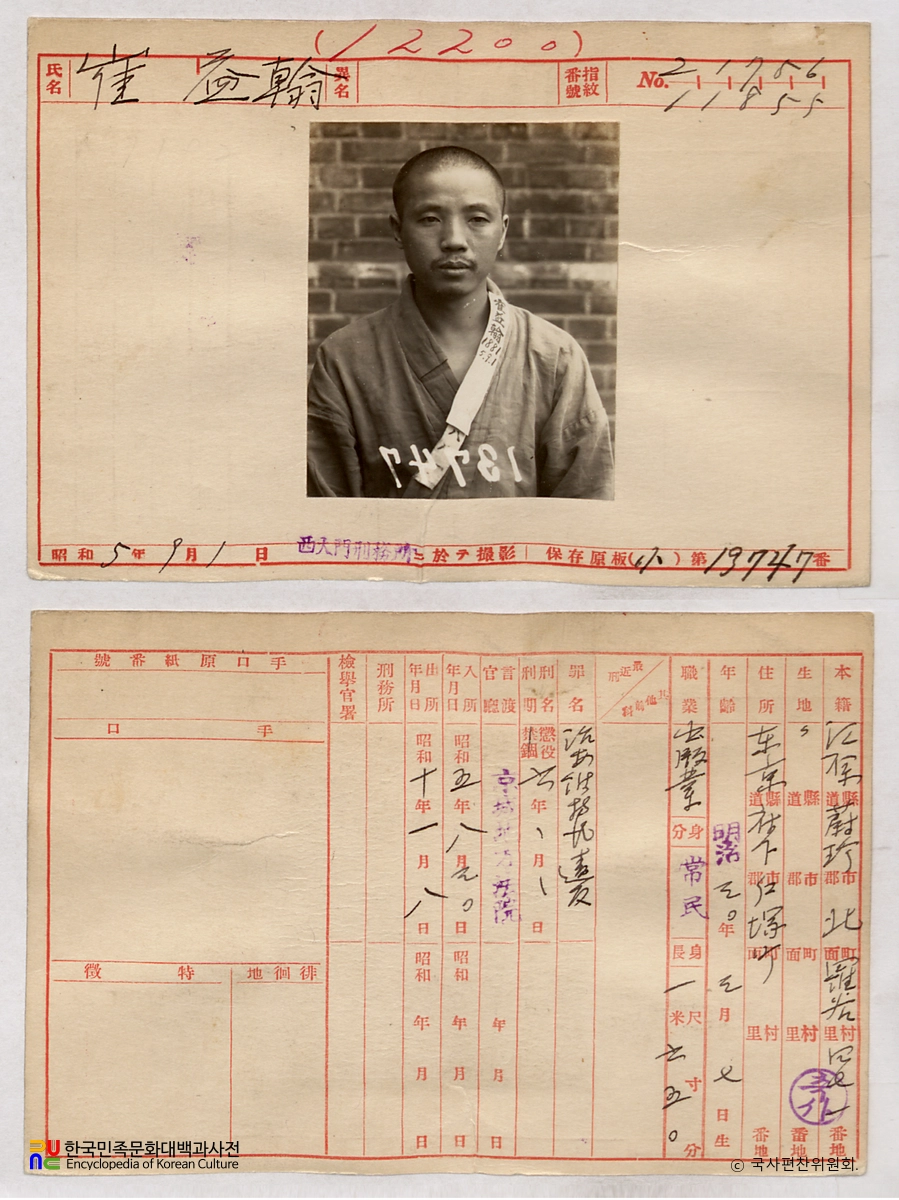 (12200)
氏名 崔益翰 異名 指紋番號 No. 2 1 7 8 6
1 1 8 5 5
崔益翰
13747
昭和5年9月1日 西大門刑務所ニ於テ撮影 保存原板(小)第13747番
手口原紙番號
手口
徘徊地
特徵
檢擧官署
刑務所
出所年月日 昭和十年一月八日 昭和 年 月 日
入所年月日 昭和五年八月三〇日 昭和 年 月 日
言渡官廳 京城地方法院 年 月 日
刑名刑期 懲役禁錮 六年、月、日
罪名 治安維持法違反
最近刑 其他前科
職業 出版業
身分 常民
身長 一米尺六寸五〇分
年齡 明治三〇年三月七日生
住所 東京 道縣 郡市 面町 里村 番地
生地 道縣 郡市 面町 里村 番地
本籍 江原道縣蔚珍郡市北面町 里村 番地
한국민족문화대백과사전
Encyclopedia of Korean Culture
© 국사편찬위원회.